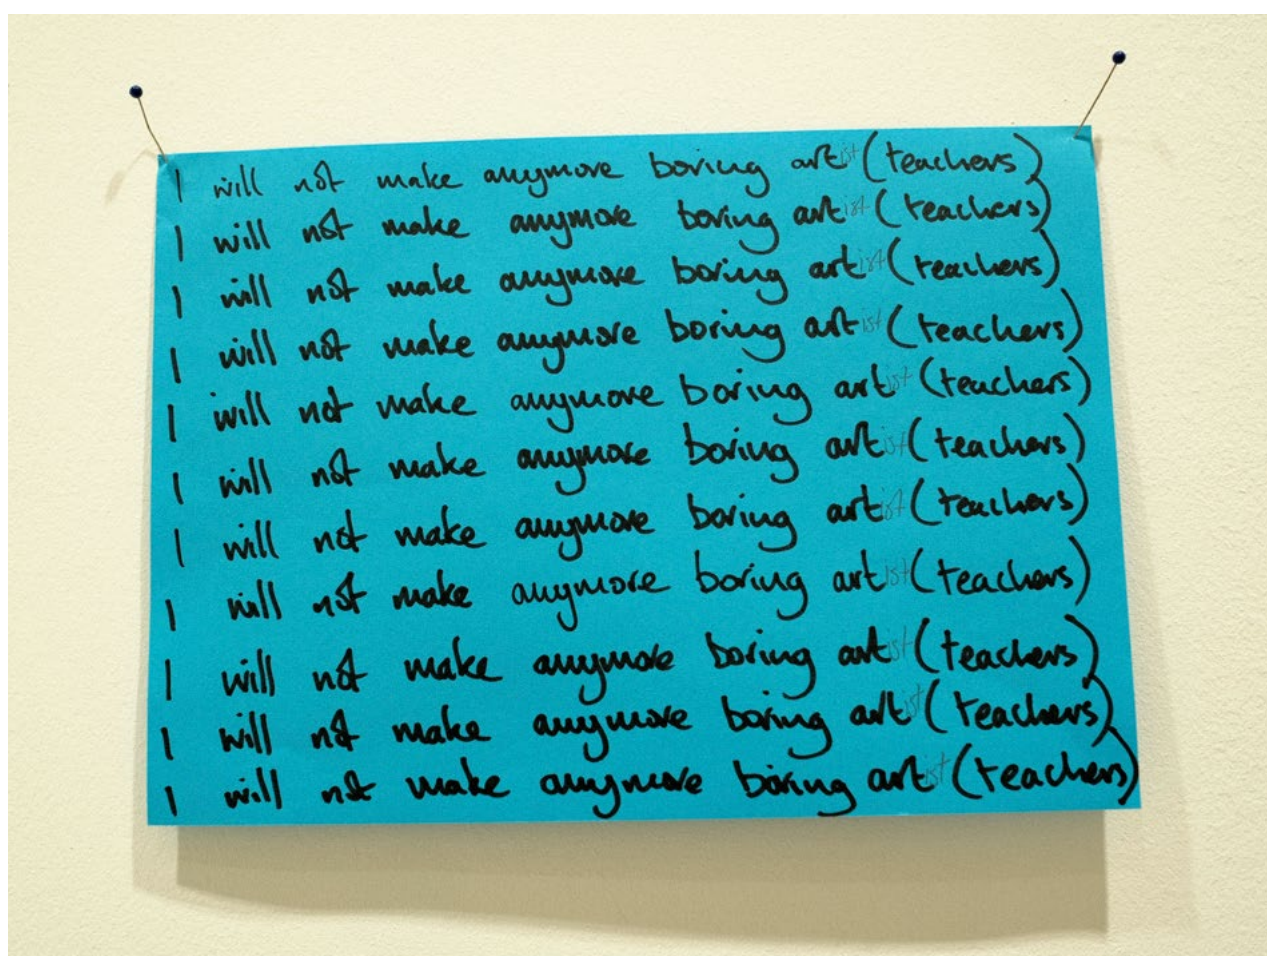 I will not make anymore boring artist (teachers)
I will not make anymore boring artist (teachers)
I will not make anymore boring artist (teachers)
I will not make anymore boring artist (teachers)
I will not make anymore boring artist (teachers)
I will not make anymore boring artist (teachers)
I will not make anymore boring artist (teachers)
I will not make anymore boring artist (teachers)
I will not make anymore boring artist (teachers)
I will not make anymore boring artist (teachers)
I will not make anymore boring artist (teachers)